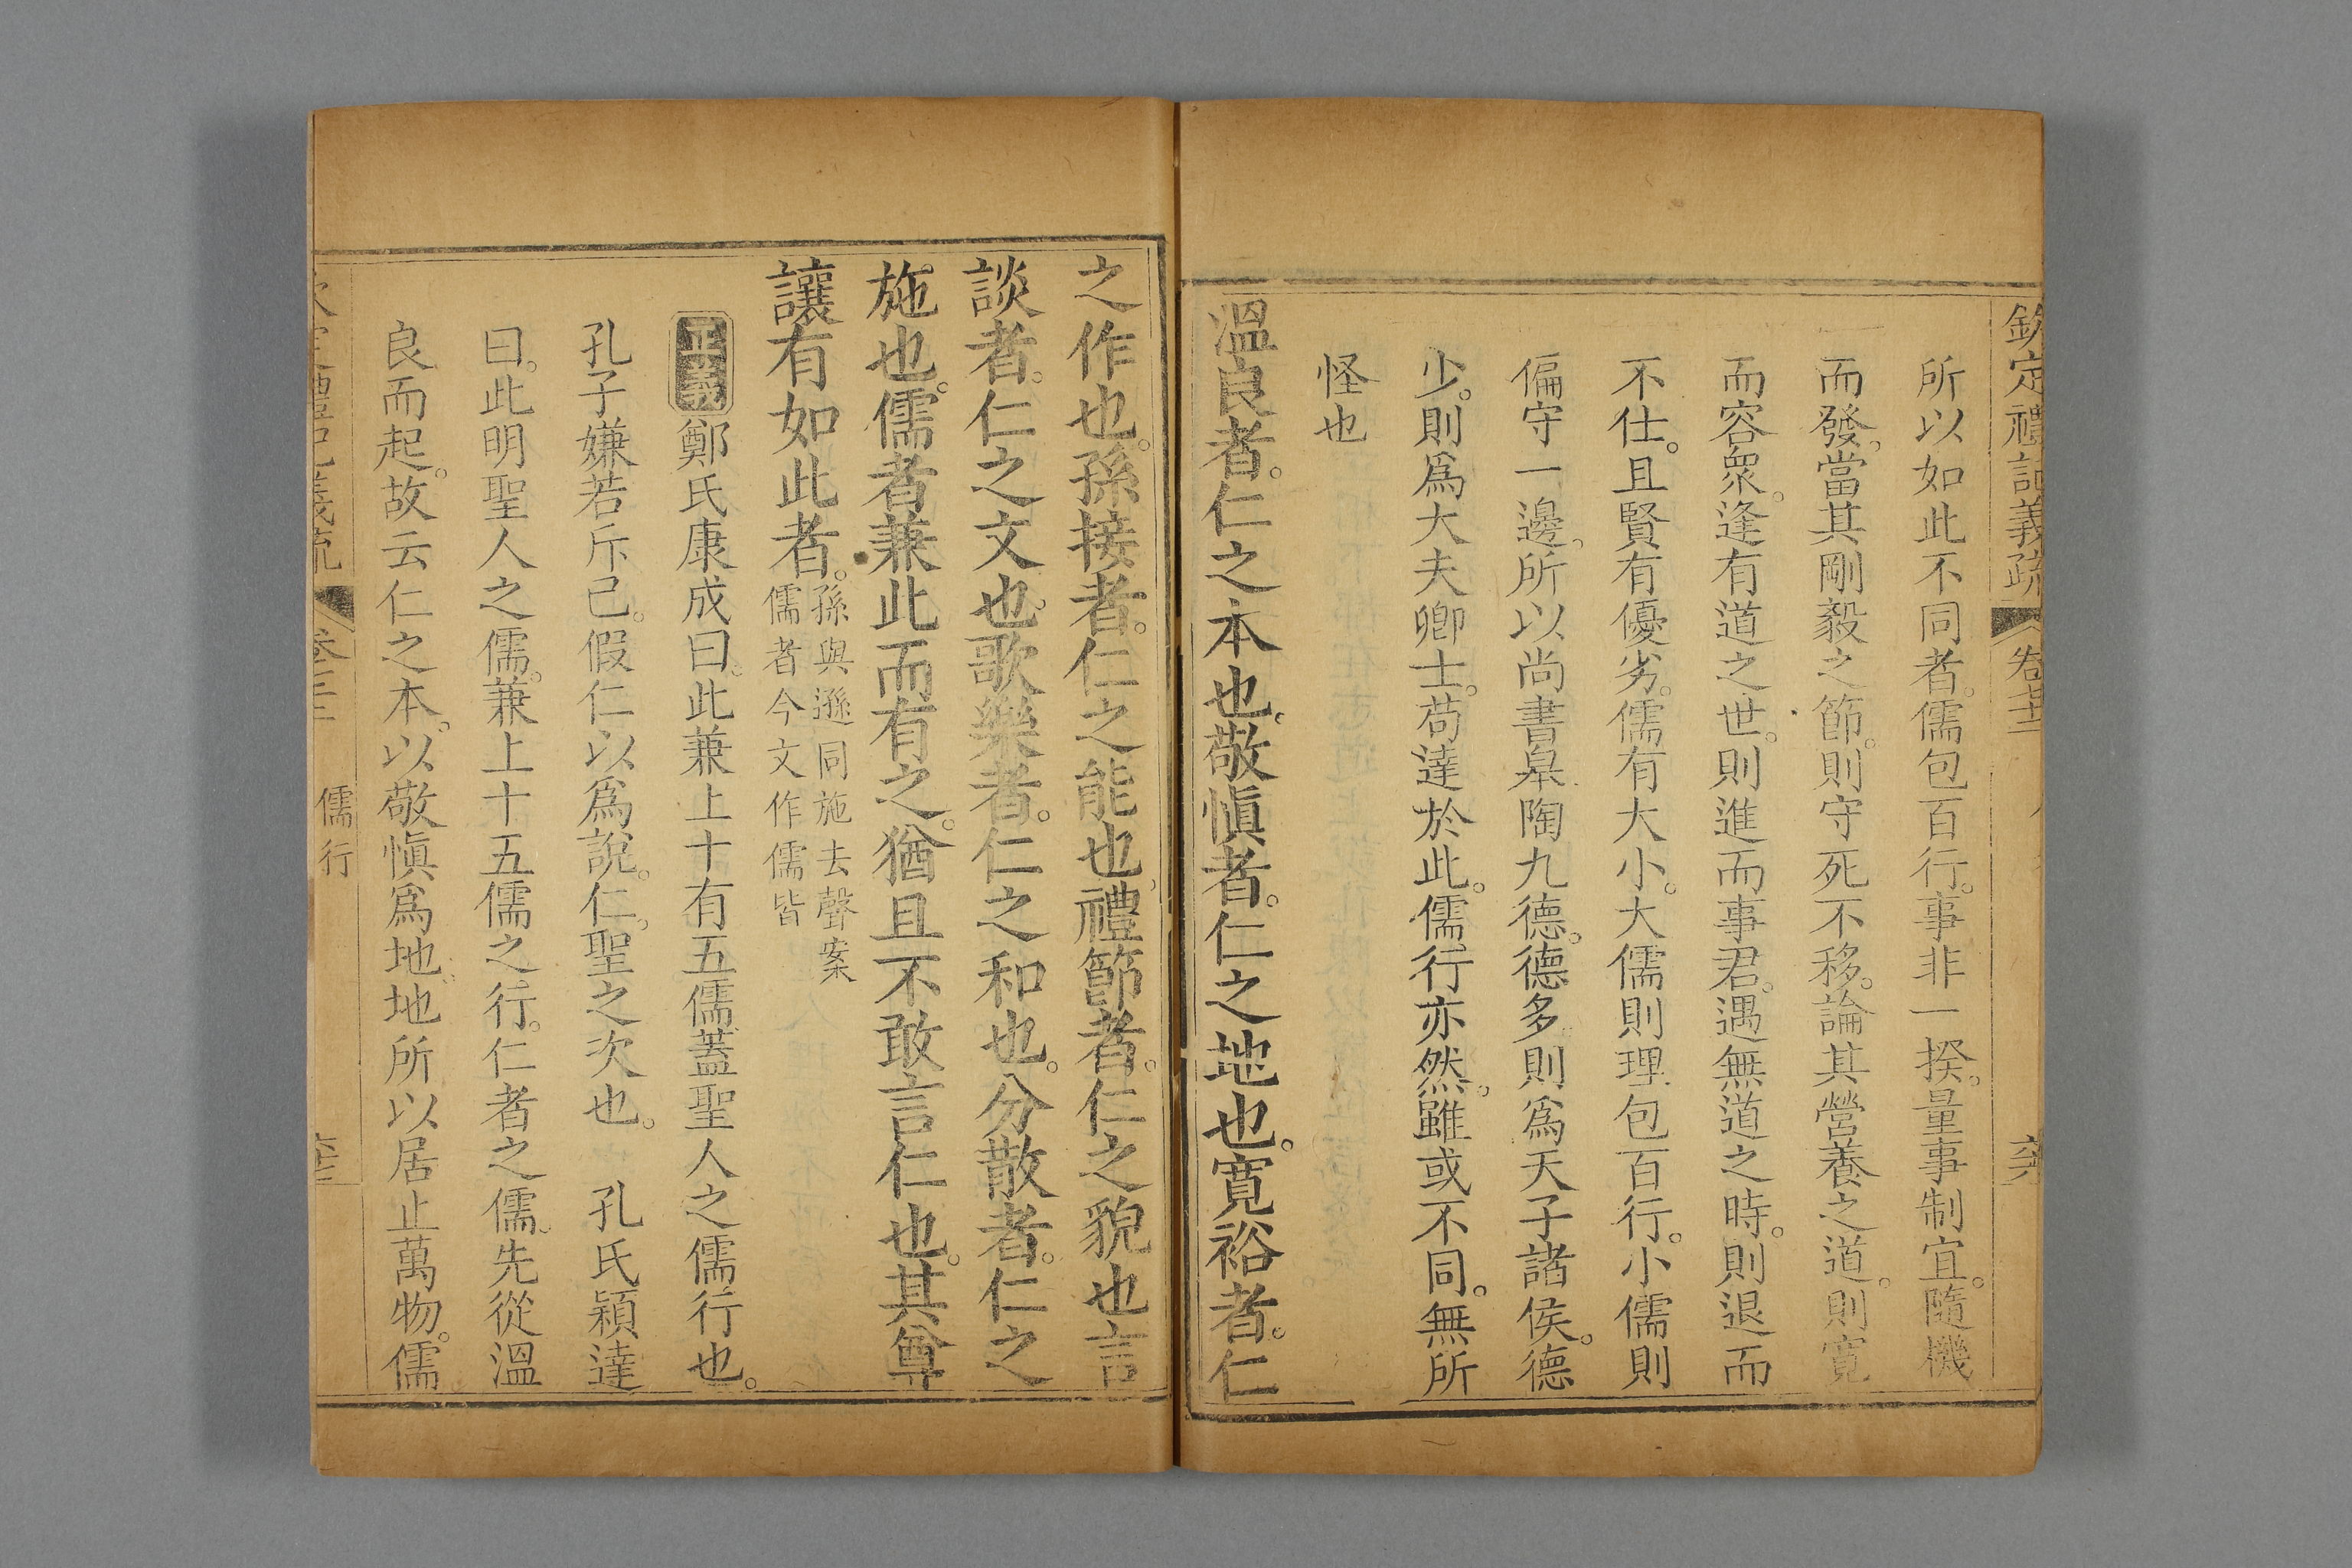 欽定禮記義疏
所以如此不同者。儒包百行。事非一揆。量事制宜。隨機
而發。當其剛毅之節。則守死不移。論其營養之道。則寬
而容衆。逢有道之世。則進而事君。遇無道之時。則退而
不仕。且賢有優劣。儒有大小。大儒則理包百行。小儒則
偏守一邊。所以尚書皋陶九德。德多則爲天子諸侯。德
少。則爲大夫卿士。苟達於此。儒行亦然。雖或不同。無所
怪也
溫良者。仁之本也。敬慎者。仁之地也。寬裕者。仁
之作也。孫接者。仁之能也。禮節者。仁之貌也言
談者。仁之文也。歌樂者。仁之和也。分散者。仁之
施也。儒者兼此而有之。猶且不敢言仁也。其尊
讓有如此者。
孫與遜同施去聲案
儒者今文作儒皆
正義鄭氏康成曰。此兼上十有五儒蓋聖人之儒行也。
孔子嫌若斥己。假仁以爲說。仁。聖之次也。 孔氏穎達
曰。此明聖人之儒。兼上十五儒之行。仁者之儒。先從溫
良而起。故云仁之本。以敬慎爲地。地所以居止萬物。儒
儒行